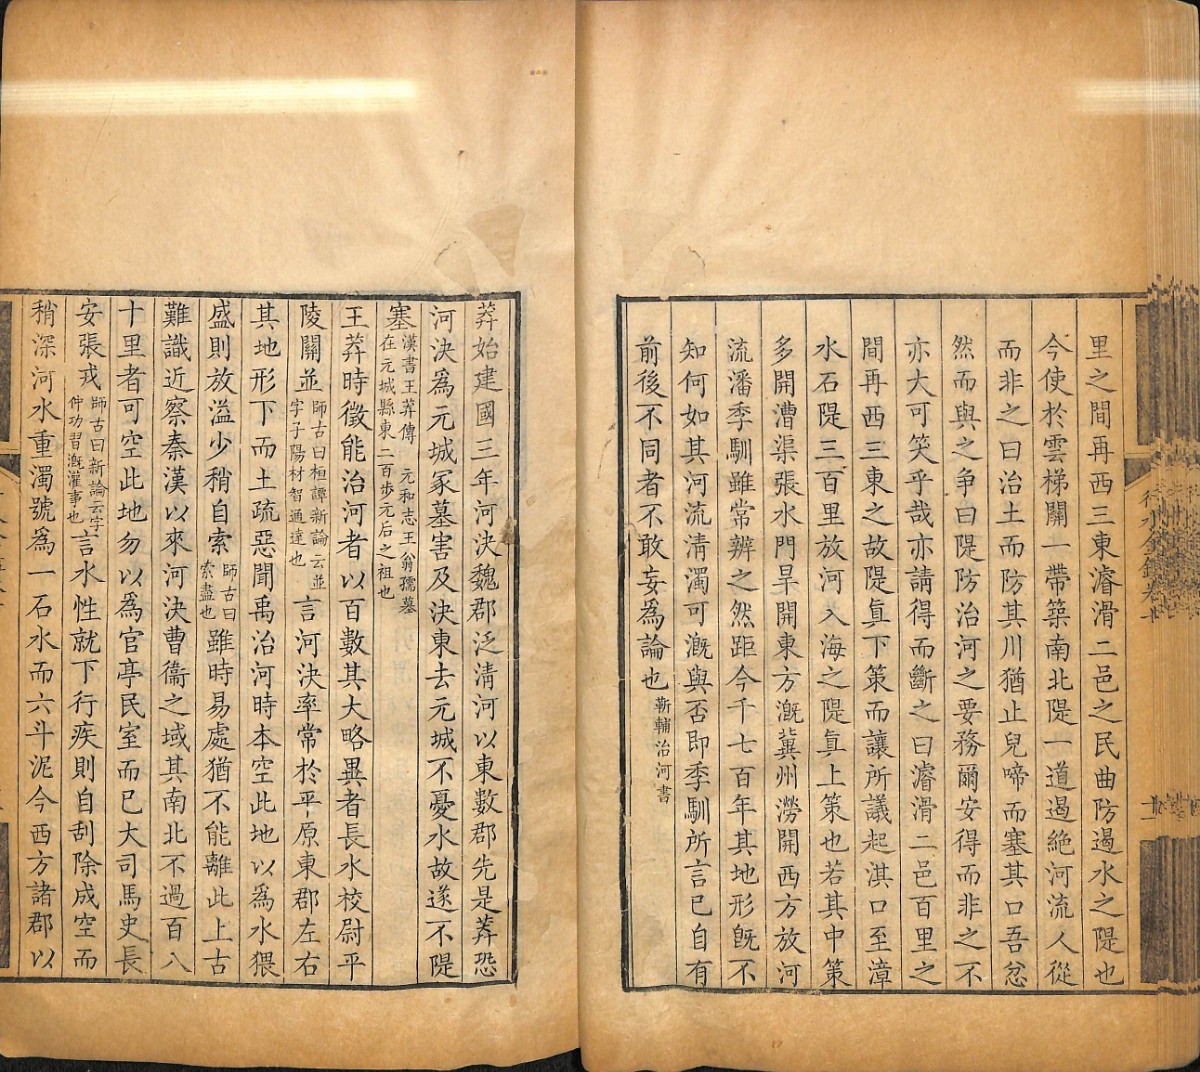 里之間再西三東濬滑二邑之民曲防遏水之隄也
今使於雲梯關一帶築南北隄一道遏絕河流人從
而非之曰治土而防其川猶止兒啼而塞其口吾忿
然而與之争曰隄防治河之要務爾安得而非之不
亦大可笑乎哉亦請得而斷之曰濬滑二邑百里之
間再西三東之故隄眞下策而讓所議起淇口至漳
水石隄三百里放河入海之隄眞上策也若其中策
多開漕渠張水門旱開東方漑冀州澇開西方放河
流潘季馴雖常辨之然距今千七百年其地形旣不
知何如其河流清濁可漑與否即季馴所言已自有
前後不同者不敢妄爲論也靳輔治河書
莽始建國三年河決魏郡泛清河以東數郡先是莽恐
河決爲元城冢墓害及決東去元城不憂水故遂不隄
塞漢書王莽傳 元和志王翁孺墓在元城縣東二百步元后之祖也
王莽時徵能治河者以百數其大略異者長水校尉平
陵關並師古曰桓譚新論云並字子陽材智通達也言河決率常於平原東郡左右
其地形下而土疏惡聞禹治河時本空此地以爲水猥
盛則放溢少稍自索師古曰索盡也雖時易處猶不能離此上古
難識近察秦漢以來河決曹衞之域其南北不過百八
十里者可空此地勿以爲官亭民室而已大司馬史長
安張戎師古曰新論云字仲功習漑灌事也言水性就下行疾則自刮除成空而
稍深河水重濁號爲一石水而六斗泥今西方諸郡以
行水金鑑卷